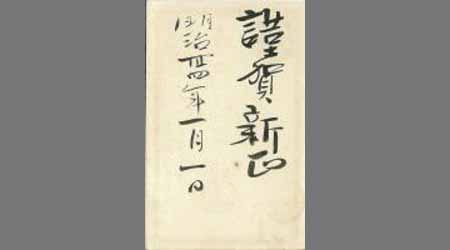 謹賀新正
明治卅四年一月一日